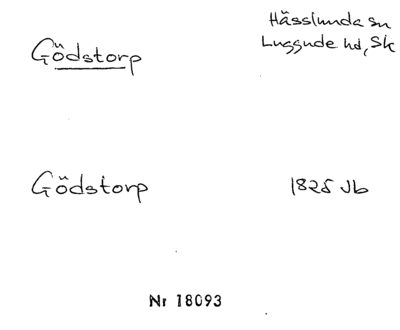 Hässlunda sn
Luggude hd, Sk
Gödstorp
Gödstorp 1825 Jb
Nr 18093